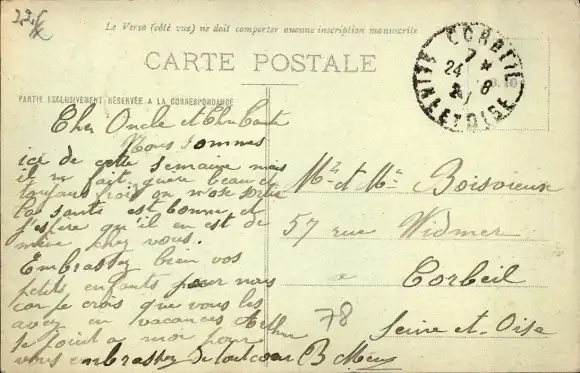 22 f
Le Verso (côté vue) ne doit comporter aucune inscription manuscrite
CARTE POSTALE
CORBEIL
7 *
24 8
SEINE-ET-OISE
PARTIE EXCLUSIVEMENT RÉSERVÉE A LA CORRESPONDANCE
Cher Oncle et Chere Tante
Nous sommes
ici de cette semaine mais
il ne fait guère beau et
toujours froid on n'ose sortir
la santé est bonne et
j'espère qu'il en est de
même chez vous.
Embrassez bien vos
petits enfants pour nous
car je crois que vous les
avez en vacances
se joint a moi pour
vous embrassez de tout cœur B
Mr et Mme
57 rue Widmer
a
Corbeil
Seine et-Oise
78